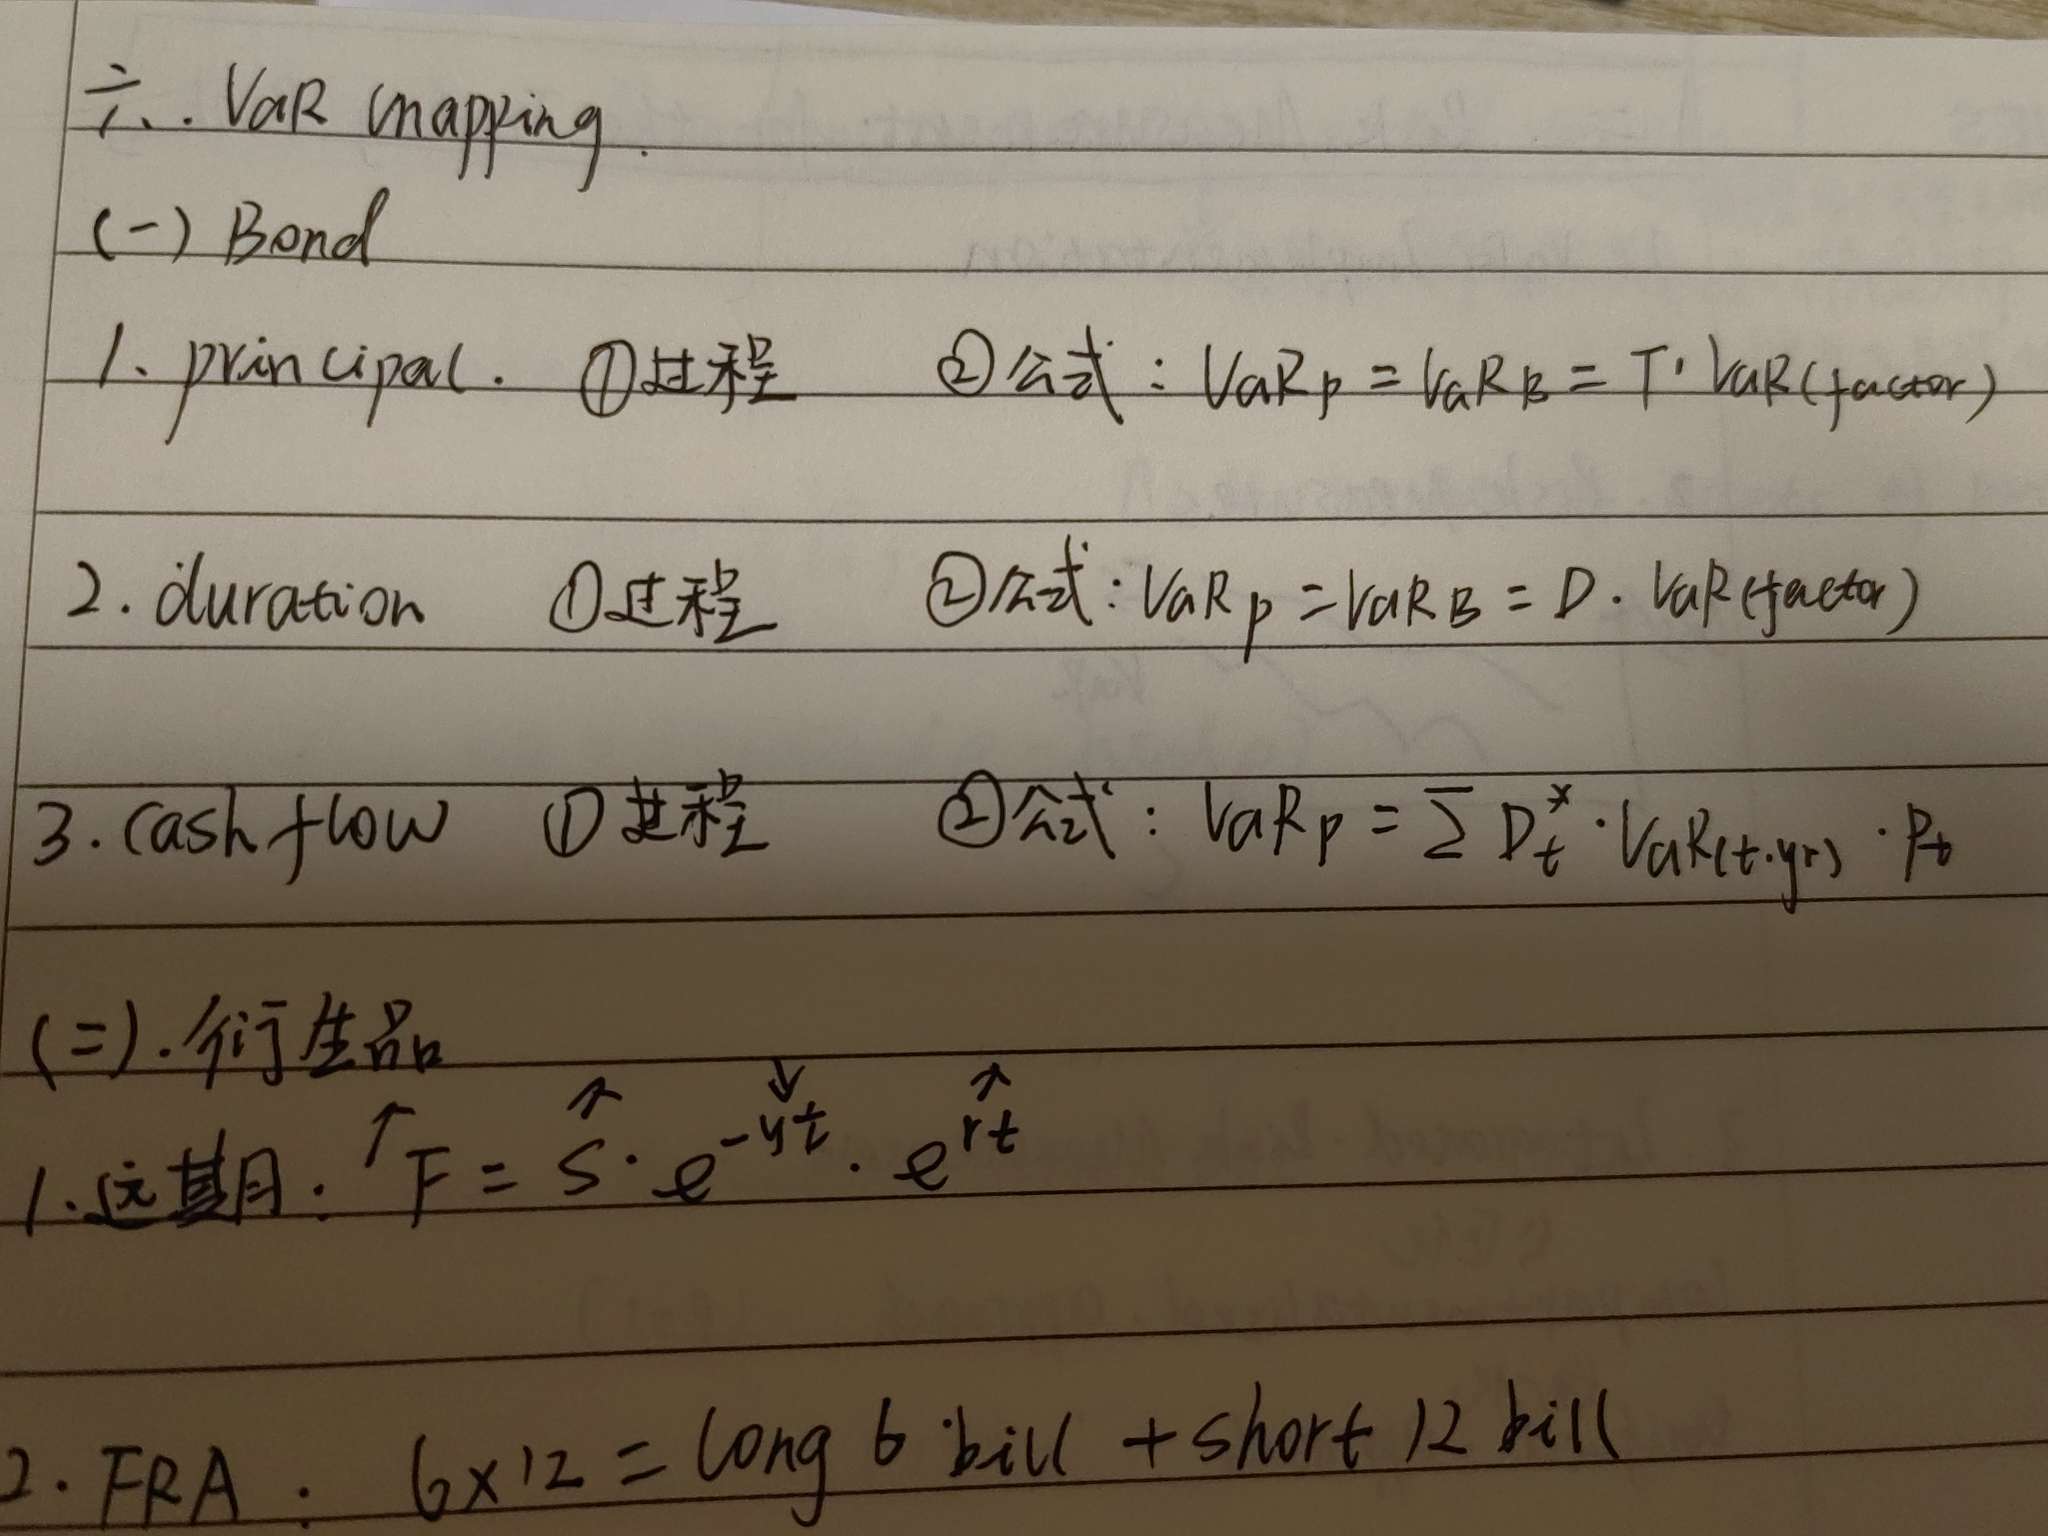 六. VaR mapping.
(一) Bond
1. principal. ①过程 ②公式: VaR_P = VaR_B = T·VaR(factor)
2. duration ①过程 ②公式: VaR_P = VaR_B = D·VaR(factor)
3. cash flow ①过程 ②公式: VaR_P = Σ D_t^*·VaR(t.yr)·P_t
(二). 衍生品
1. 远期: ↑F = S↑·e^{-yt↓}·e^{rt↑}
2. FRA: 6×12 = long 6 bill + short 12 bill